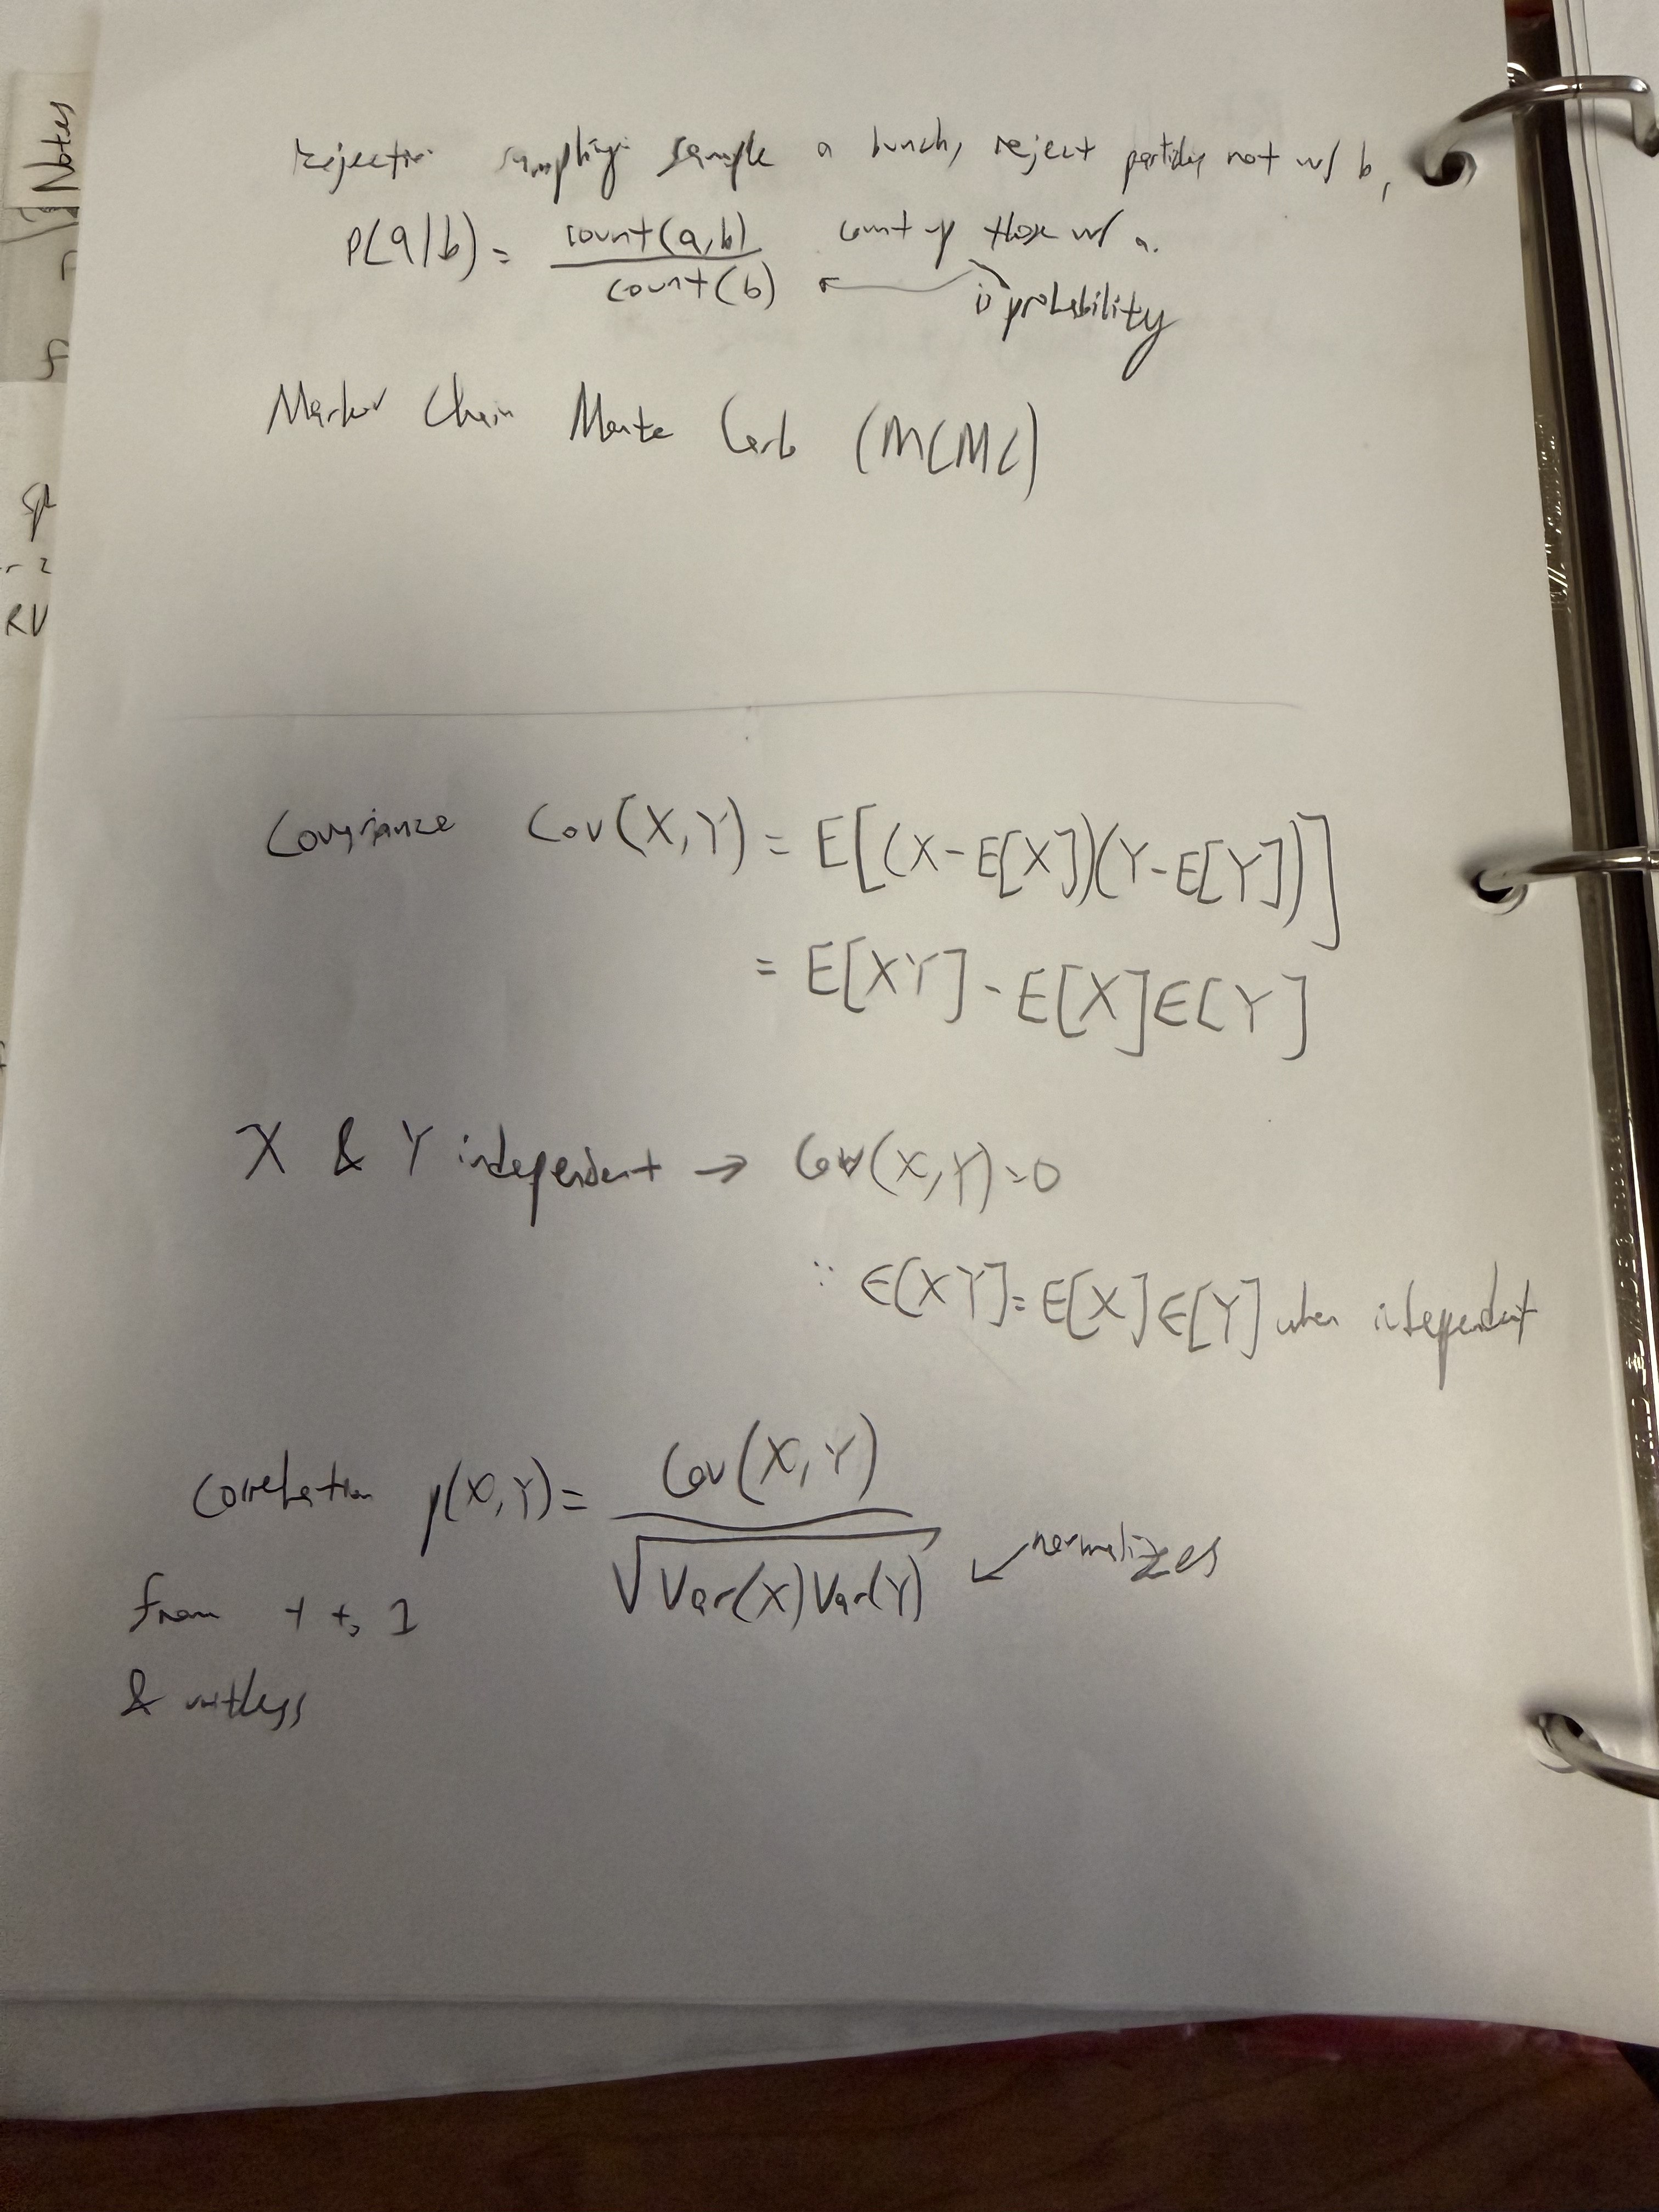 Notes
Sp
RV
rejection sampling: sample a bunch, reject particles not w/ b,
P(a|b) = count(a,b) / count(b) count up those w/ a.
is probability
Markov Chain Monte Carlo (MCMC)
Covariance Cov(X,Y) = E[(X-E[X])(Y-E[Y])]
= E[XY] - E[X]E[Y]
X & Y independent → Cov(X,Y)=0
∵ E[XY]=E[X]E[Y] when independent
Correlation ρ(X,Y)= Cov(X,Y) / √Var(X)Var(Y) ↙ normalizes
from -1 to 1
& unitless